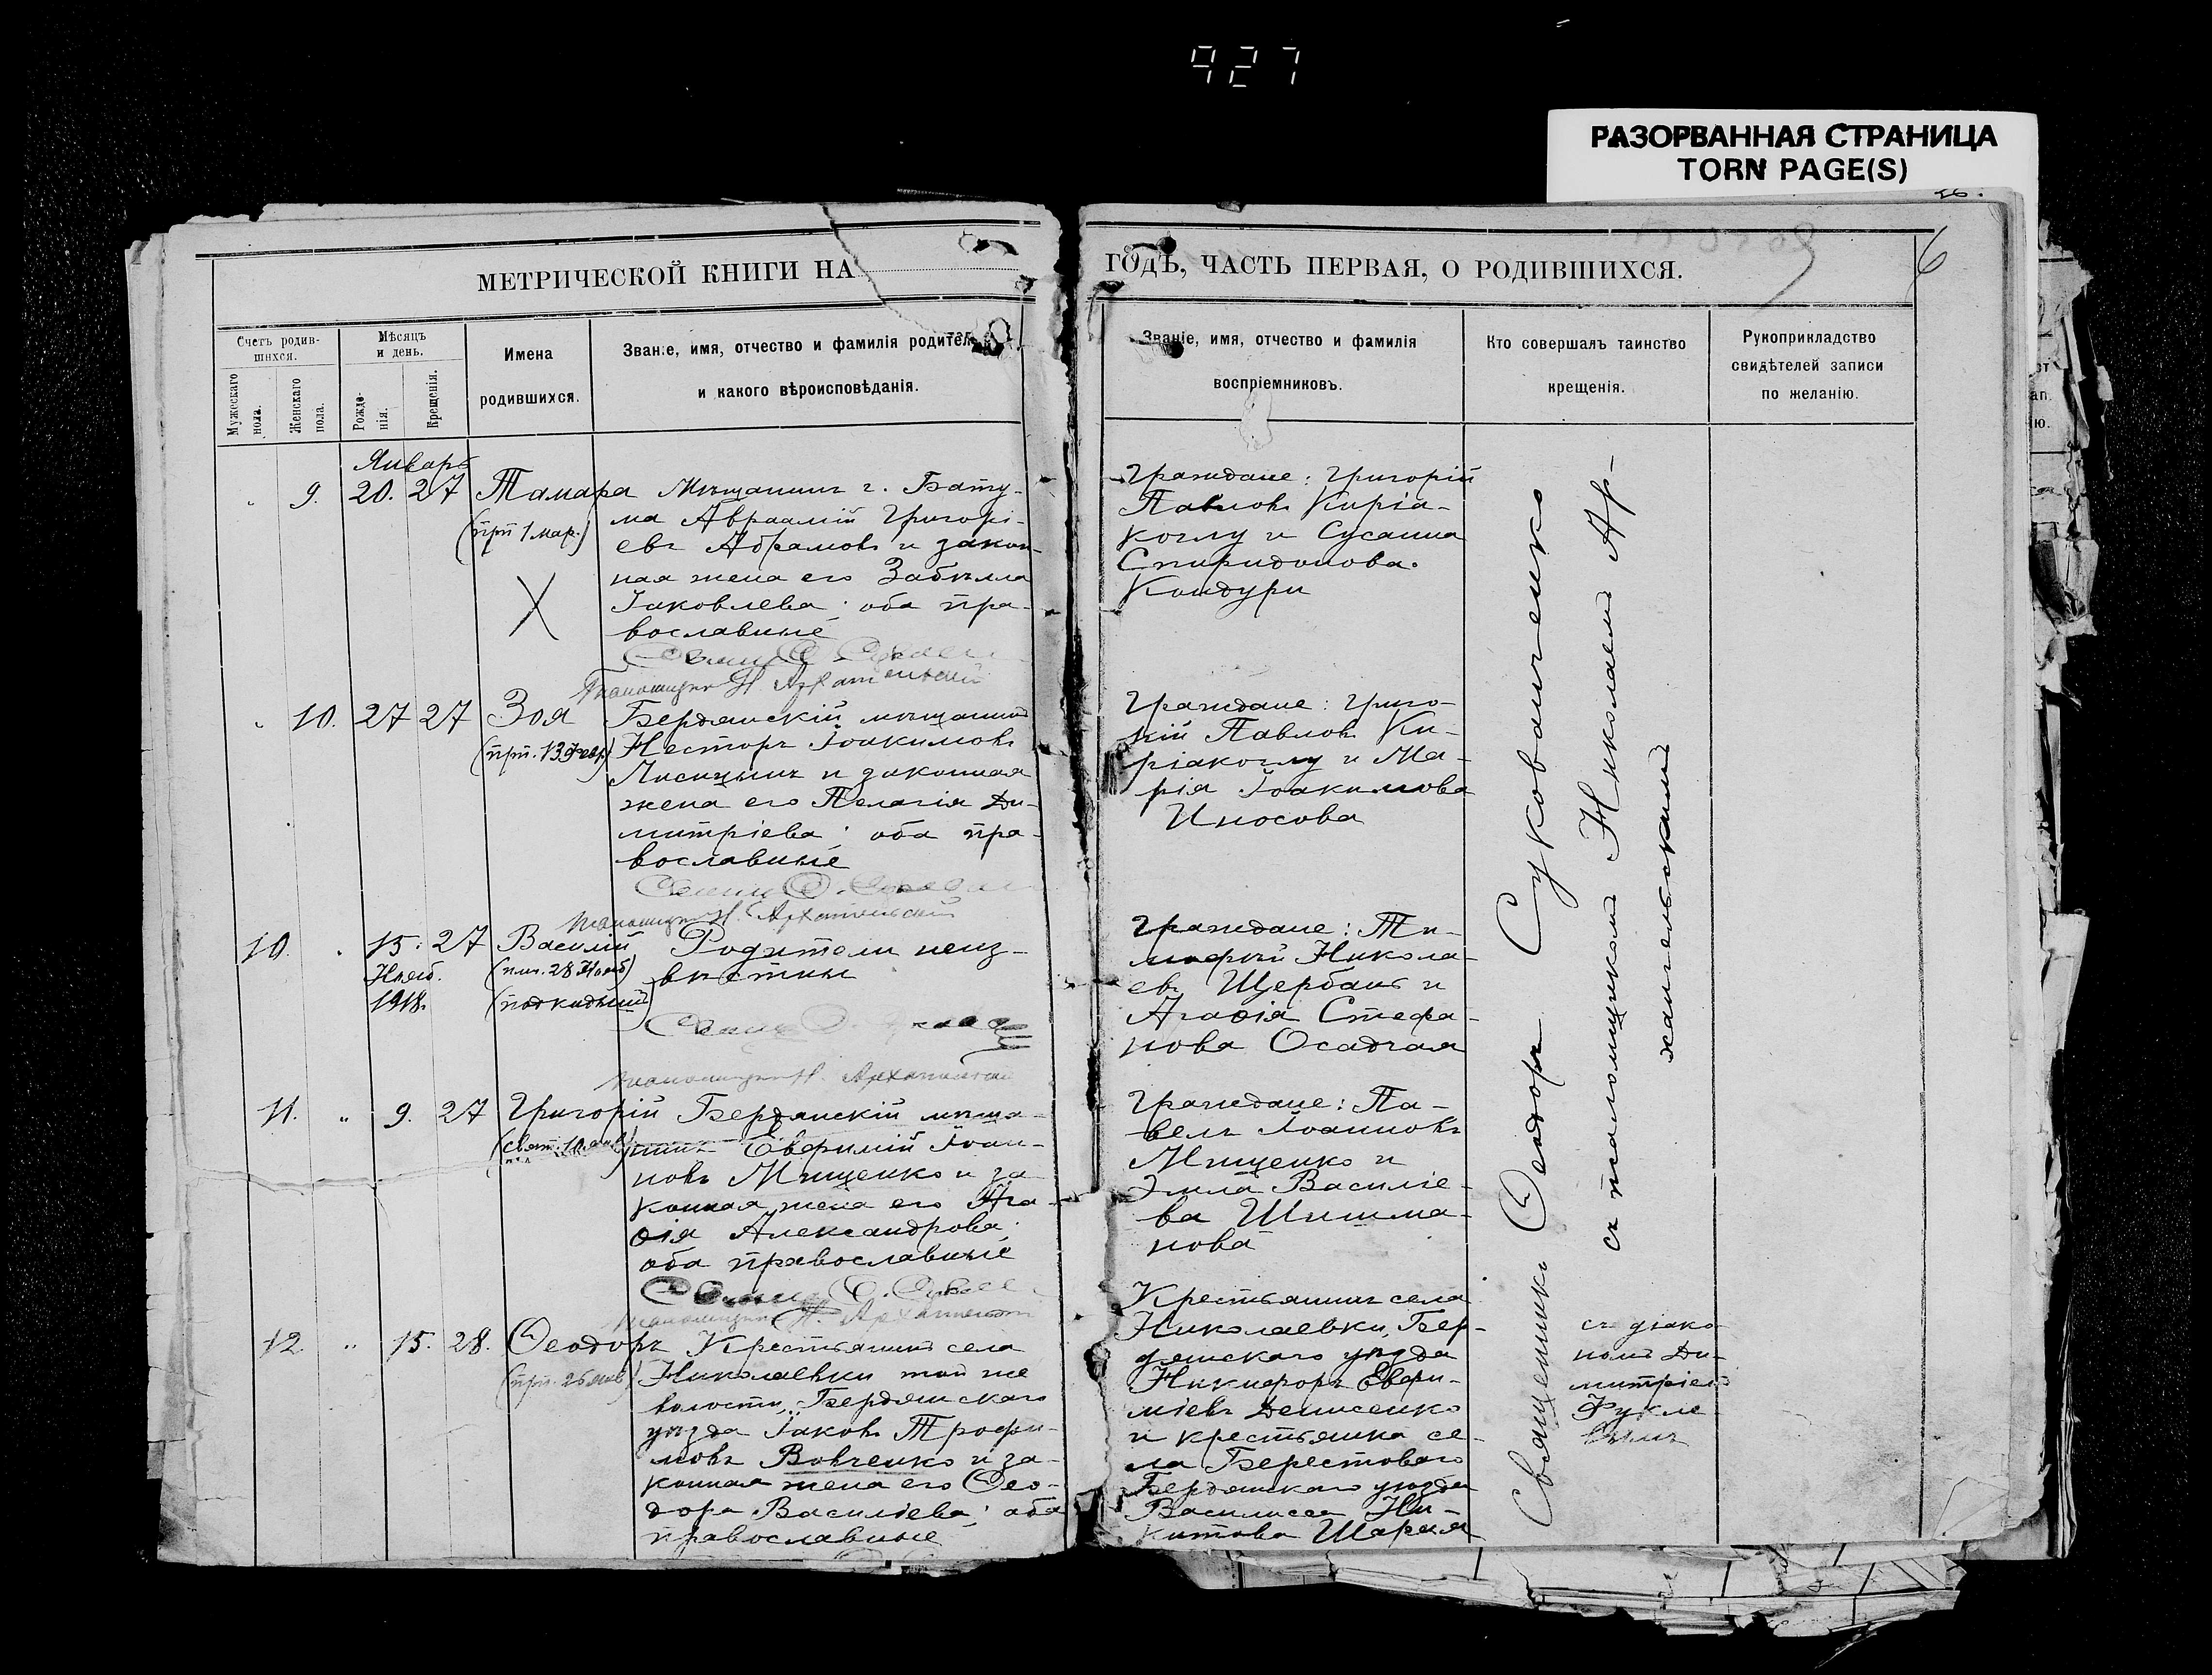 927
РАЗОРВАННАЯ СТРАНИЦА
TORN PAGE(S)
6
МЕТРИЧЕСКОЙ КНИГИ НА
ГОДЪ, ЧАСТЬ ПЕРВАЯ, О РОДИВШИХСЯ.
Счетъ родив-
шихся.
Мужескаго
пола.
Женскаго
пола.
Мѣсяцъ
и день.
Рожде-
нія.
Крещенія.
Имена
родившихся.
Званіе, имя, отчество и фамилія родител
и какого вѣроисповѣданія.
Званіе, имя, отчество и фамилія
воспріемниковъ.
Кто совершалъ таинство
крещенія.
Рукоприкладство
свидѣтелей записи
по желанію.
Январь
9. 20. 27 Тамара
(прп 1 мар.)
Мѣщанинъ г. Бату-
ма Авраамій Григорі-
евъ Абрамовъ и закон-
ная жена его
Іаковлева; оба пра-
вославные
Псаломщикъ Н. Архангельскій
Граждане: Григорій
Павловъ Киріа-
коглу и Сусанна
Спиридонова
Кондури
10. 27 27 Зоя
(прп. 13 февр)
Бердянскій мѣщанинъ
Несторъ Іоакимовъ
Лисицынъ и законная
жена его Пелагія Ди-
митріева; оба пра-
вославные
Псаломщикъ Н. Архангельскій
Граждане: Григо-
рій Павловъ Ки-
ріакоглу и Ма-
рія Іоакимова
Иносова
10. 15. 27 Василій
Нояб. (прп. 28 Нояб)
1918. (подкидышъ)
Родители неиз-
вѣстны
Псаломщикъ Н. Архангельскій
Граждане: Ти-
мофей Никола-
евъ Щербань и
Агаѳія Стефа-
нова Осадчая
11. " 9. 27 Григорій
(свят. 10 янв)
Бердянскій мѣща-
нинъ Евфимій Іоан-
новъ Мищенко и за
конная жена его Ага-
ѳія Александрова;
оба православные
Псаломщикъ Н. Архангельскій
Граждане: Па-
велъ Іоанновъ
Мищенко и
Василіе-
ва Шишма-
нова
12. " 15. 28. Ѳеодоръ
(прп. 26 янв)
Крестьянинъ села
Николаевки той же
волости, Бердянскаго
уѣзда Іаковъ Трофи-
мовъ Вовченко и за-
конная жена его Ѳео-
дора Василіева; оба
православные
Крестьянинъ села
Николаевки, Бер-
дянскаго уѣзда
Никифоръ Евфи-
міевъ Денисенко
и крестьянка се-
ла Берестоваго
Бердянскаго уѣзда
Василисса Ни-
китова Шарая
Священникъ Ѳеодоръ Сукованченко
съ псаломщикомъ Николаемъ Ар-
хангельскимъ
съ діако-
номъ Ди-
митріемъ